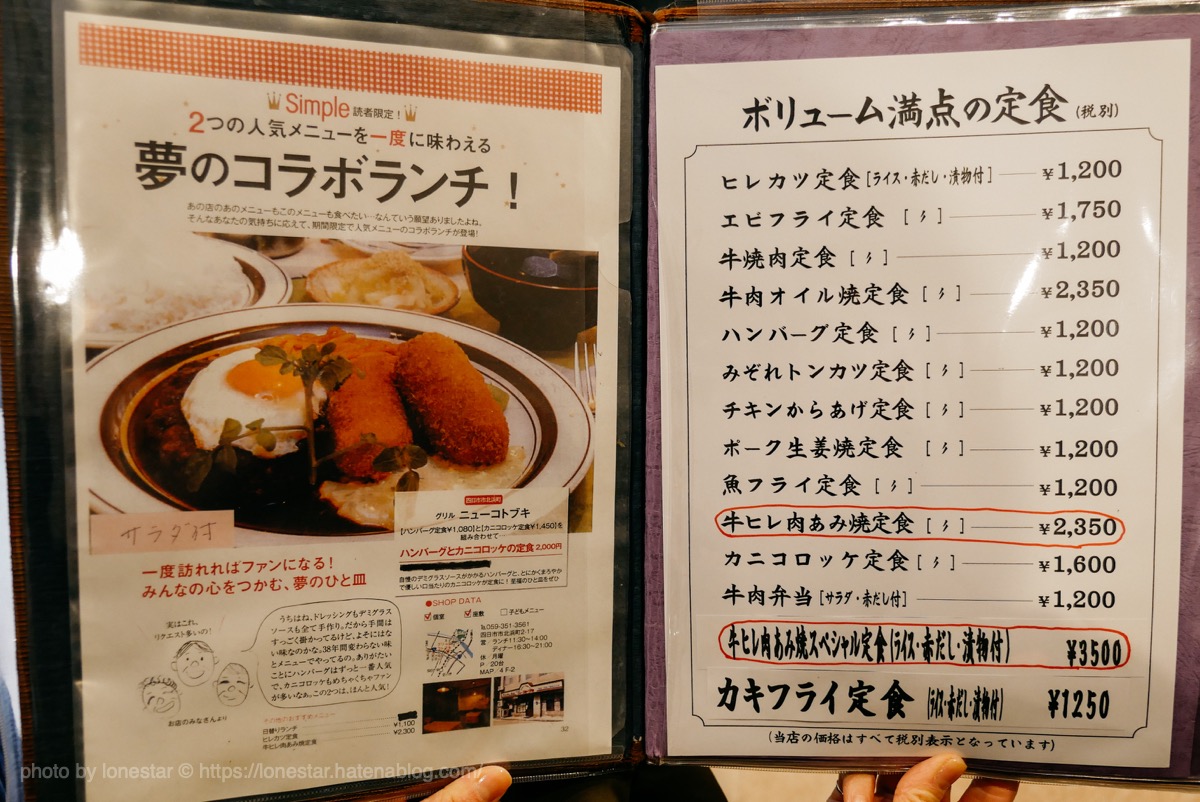 Simple 読者限定！
2つの人気メニューを一度に味わえる
夢のコラボランチ！
あの店のあのメニューもこのメニューも食べたい…なんていう願望ありましたよね。
そんなあなたの気持ちに応えて、期間限定で人気メニューのコラボランチが登場！
サラダ付
四日市市北浜町
グリル ニューコトブキ
[ハンバーグ定食¥1,080]と[カニコロッケ定食¥1,450]を
組み合わせて…
ハンバーグとカニコロッケの定食 2,000円
自慢のデミグラスソースがかかるハンバーグと、とにかくまろやか
で優しい口当たりのカニコロッケが定食に！至福のひと皿をぜひ
一度訪れればファンになる！
みんなの心をつかむ、夢のひと皿
実はこれ、
リクエスト多いの！
うちはね、ドレッシングもデミグラス
ソースも全て手作り。だから手間は
すっごく掛かってるけど、よそにはな
い味なのかな。38年間変わらない味
とメニューでやってるの。ありがたい
ことにハンバーグはずっと一番人気
で、カニコロッケもめちゃくちゃファン
が多いなぁ。この2つは、ほんと人気！
お店のみなさんより
その他のおすすめメニュー
日替りランチ
ヒレカツ定食 ¥1,100
牛ヒレ肉あみ焼定食 ¥2,300
●SHOP DATA
個室 座敷 子どもメニュー
059-351-3561
四日市市北浜町2-17
営 ランチ11:30〜14:00
ディナー16:30〜21:00
休 月曜
P 20台
MAP／4 F-2
32
ボリューム満点の定食(税別)
ヒレカツ定食[ライス・赤だし・漬物付] ¥1,200
エビフライ定食 [〃] ¥1,750
牛焼肉定食 [〃] ¥1,200
牛肉オイル焼定食 [〃] ¥2,350
ハンバーグ定食 [〃] ¥1,200
みぞれトンカツ定食 [〃] ¥1,200
チキンからあげ定食 [〃] ¥1,200
ポーク生姜焼定食 [〃] ¥1,200
魚フライ定食 [〃] ¥1,200
牛ヒレ肉あみ焼定食 [〃] ¥2,350
カニコロッケ定食 [〃] ¥1,600
牛肉弁当[サラダ・赤だし付] ¥1,200
牛ヒレ肉あみ焼スペシャル定食(ライス・赤だし・漬物付) ¥3500
カキフライ定食 (ライス・赤だし・漬物付) ¥1250
(当店の価格はすべて税別表示となっています)
photo by lonestar © https://lonestar.hatenablog.com/